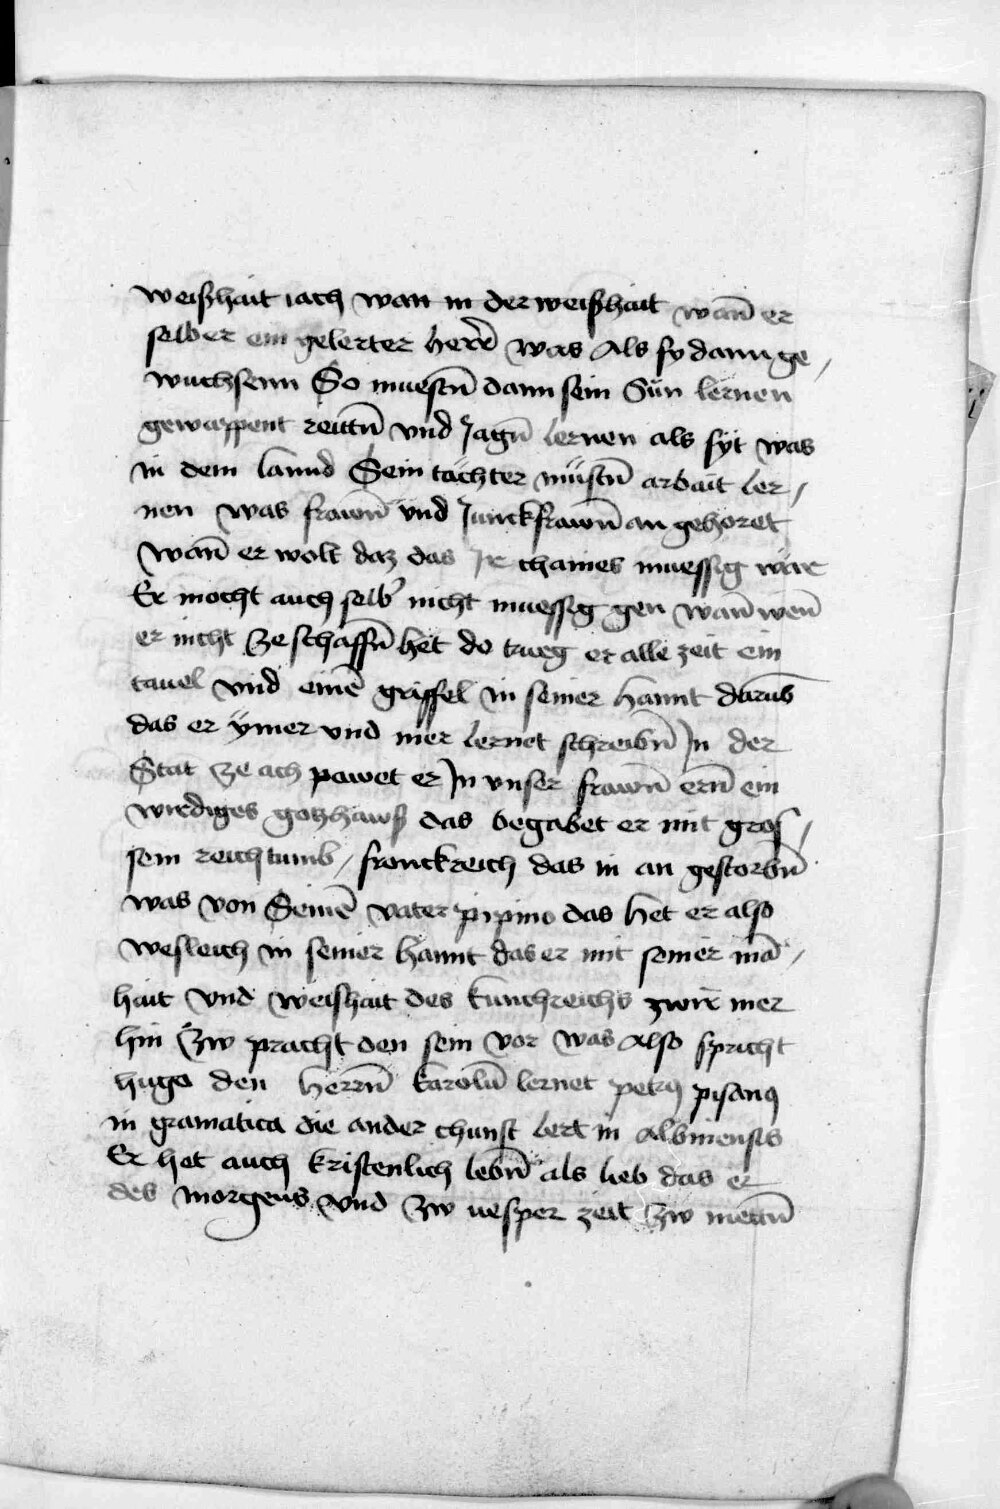 weißhait iach wan in der weißhait wan̄ er
selber ein gelerter herr̄ was Als sy dann ge-
wuchsenn So muestn̄ dann sein Sün lernen
gewappent reittn̄ vnd Jagn̄ lernen als syt was
in dem lannd Sein töchter müstn̄ arbait ler-
nen was frawn̄ vnd Junckfrawn̄ an gehoret
Wan̄ er wolt daz das Ir chaines muessig wär
Er mocht auch selb' nicht muessig gen wan̄ wen̄
er nicht ze schaffn̄ het do trueg er alle zeit ein
tauel vnd einē griffel in seiner hannt darūb
das er ÿmer vnd mer lernet schreibn̄ In der
Stat ze ach pawet er In vnser frawn̄ ern̄ ein
wirdiges gotzhawß das begabet er mit gros-
sem reichtumb / franckreich das in an gestorbn̄
was von Seinē vater pipino das het er also
wesleich in seiner hannt das er mit seiner mā-
hait vnd weishait des kunchreichs zwir mer
hin Zw pracht den sein vor was Also spricht
hugo den herrn̄ karolū lernet petrꝰ pisanꝰ
in gramatica die ander chunst lert in Albinensis
Er het auch kristenlich lebn̄ als lieb das er
des morgens vnd Zw uesper zeit Zw mettn̄